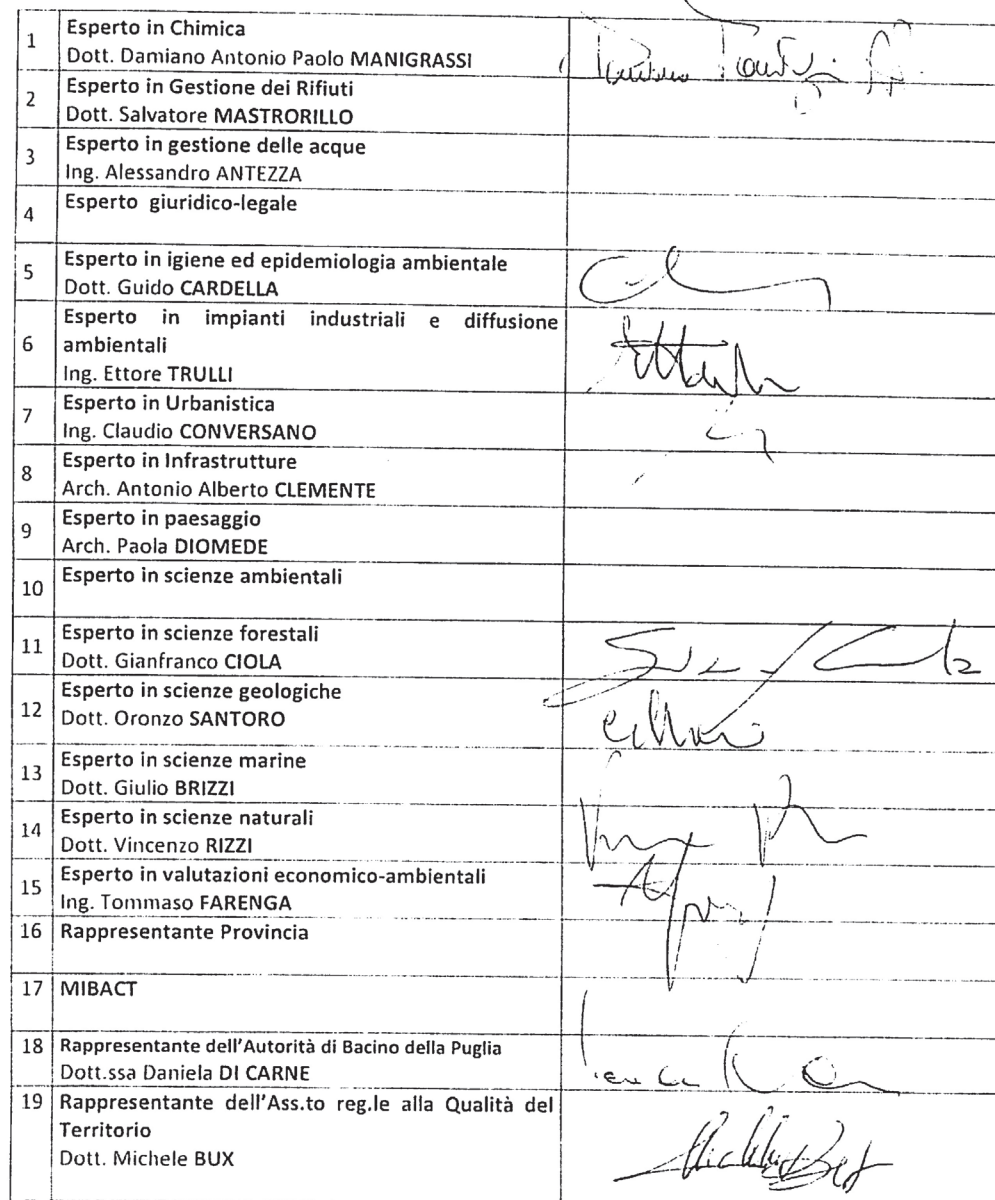 1
Esperto in Chimica
Dott. Damiano Antonio Paolo MANIGRASSI
2
Esperto in Gestione dei Rifiuti
Dott. Salvatore MASTRORILLO
3
Esperto in gestione delle acque
Ing. Alessandro ANTEZZA
4
Esperto giuridico-legale
5
Esperto in igiene ed epidemiologia ambientale
Dott. Guido CARDELLA
6
Esperto in impianti industriali e diffusione
ambientali
Ing. Ettore TRULLI
7
Esperto in Urbanistica
Ing. Claudio CONVERSANO
8
Esperto in Infrastrutture
Arch. Antonio Alberto CLEMENTE
9
Esperto in paesaggio
Arch. Paola DIOMEDE
10
Esperto in scienze ambientali
11
Esperto in scienze forestali
Dott. Gianfranco CIOLA
12
Esperto in scienze geologiche
Dott. Oronzo SANTORO
13
Esperto in scienze marine
Dott. Giulio BRIZZI
14
Esperto in scienze naturali
Dott. Vincenzo RIZZI
15
Esperto in valutazioni economico-ambientali
Ing. Tommaso FARENGA
16 Rappresentante Provincia
17 MIBACT
18 Rappresentante dell'Autorità di Bacino della Puglia
Dott.ssa Daniela DI CARNE
19 Rappresentante dell'Ass.to reg.le alla Qualità del
Territorio
Dott. Michele BUX